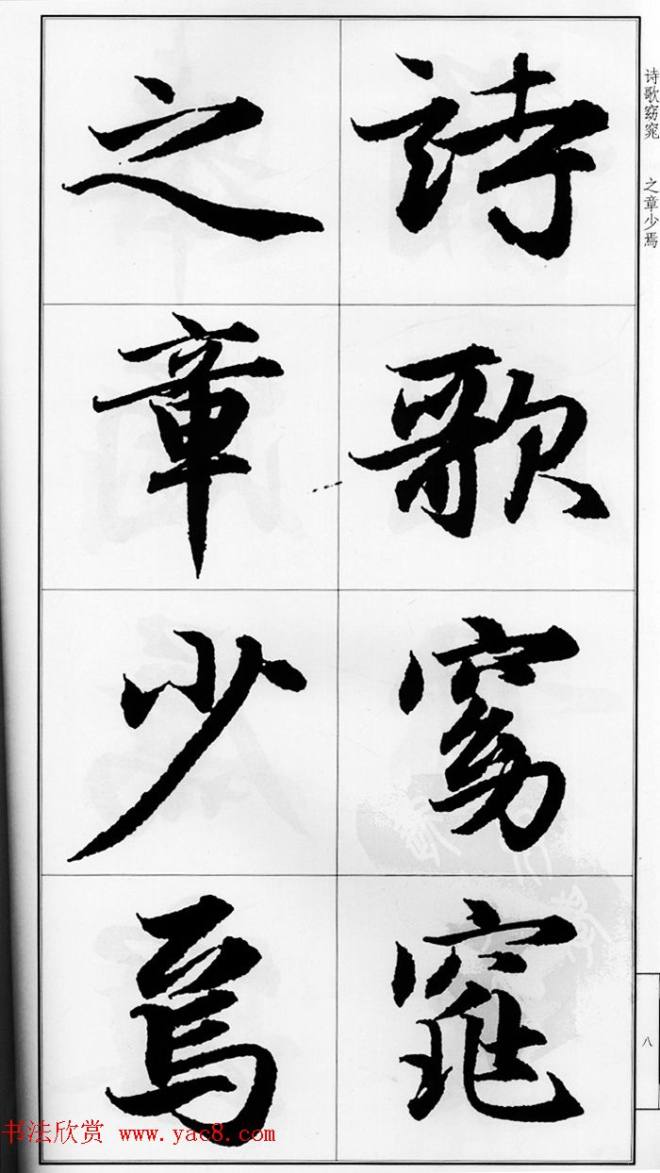 詩歌窈窕
之章少焉
诗歌窈窕 之章少焉
八
书法欣赏 www.yac8.com